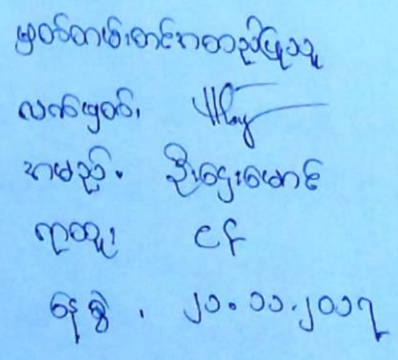 မှတ်တမ်းတင်အတည်ပြုသူ
လက်မှတ်၊
အမည်၊ ဦးဌေးမောင်
ရာထူး၊ ငဖ
နေ့စွဲ၊ ၂၁.၁၁.၂၀၁၇